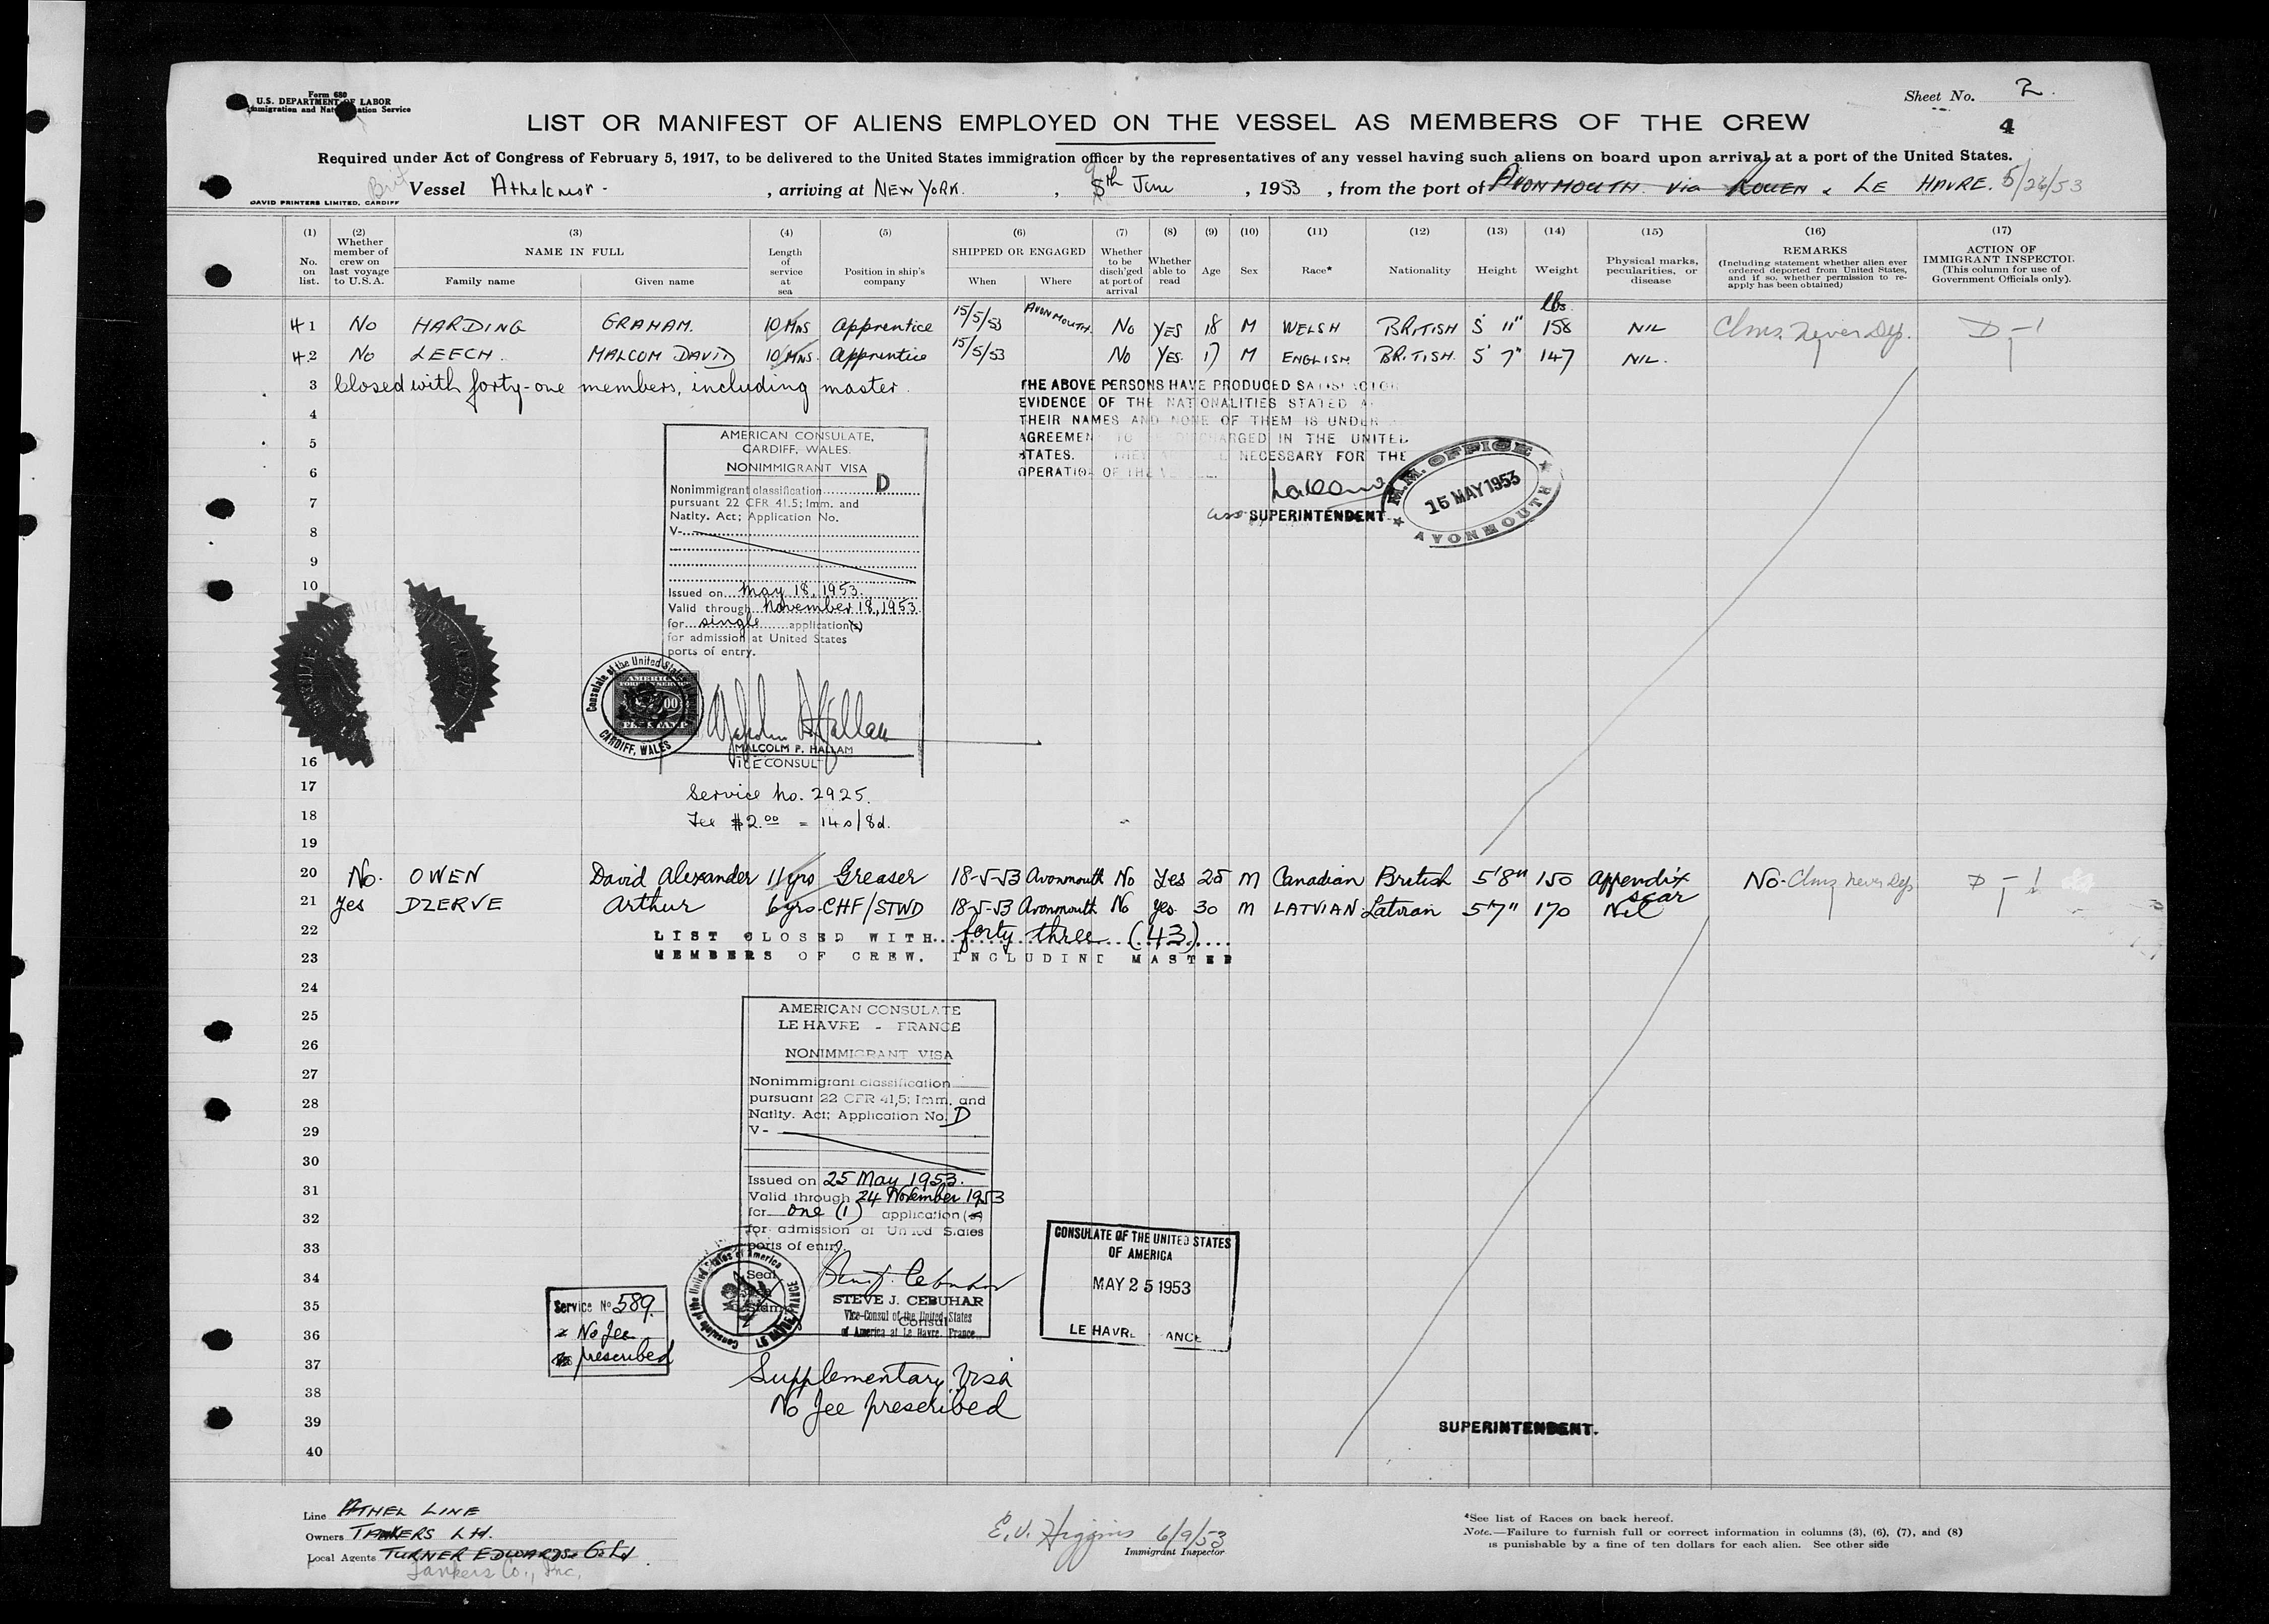 Form 680
U.S. DEPARTMENT OF LABOR
Immigration and Naturalization Service
Sheet No. 2.
4
LIST OR MANIFEST OF ALIENS EMPLOYED ON THE VESSEL AS MEMBERS OF THE CREW
Required under Act of Congress of February 5, 1917, to be delivered to the United States immigration officer by the representatives of any vessel having such aliens on board upon arrival at a port of the United States.
Brit Vessel Athelcrest , arriving at NEW YORK. , 8th June , 1953 , from the port of AVONMOUTH via ROUEN & LE HAVRE. 5/26/53
DAVID PRINTERS LIMITED, CARDIFF
(1) No. on list.
(2) Whether member of crew on last voyage to U.S.A.
(3) NAME IN FULL
Family name
Given name
(4) Length of service at sea
(5) Position in ship's company
(6) SHIPPED OR ENGAGED
When
Where
(7) Whether to be disch'ged at port of arrival
(8) Whether able to read
(9) Age
(10) Sex
(11) Race*
(12) Nationality
(13) Height
(14) Weight
(15) Physical marks, pecularities, or disease
(16) REMARKS
(Including statement whether alien ever ordered deported from United States, and if so, whether permission to re-apply has been obtained)
(17) ACTION OF IMMIGRANT INSPECTOR
(This column for use of Government Officials only).
lbs
1 No HARDING GRAHAM. 10 MNS Apprentice 15/5/53 AVONMOUTH. No YES 18 M WELSH BRITISH 5' 11" 158 NIL Clms. Never Dep. D-1
2 No LEECH. MALCOM DAVID 10 MNS. Apprentice 15/5/53 No YES. 17 M ENGLISH BRITISH. 5' 7" 147 NIL.
3 Closed with forty-one members, including master.
THE ABOVE PERSONS HAVE PRODUCED SATISFACTOR
EVIDENCE OF THE NATIONALITIES STATED A
THEIR NAMES AND NONE OF THEM IS UNDER
AGREEMEN TO BE DISCHARGED IN THE UNITED
STATES. THEY NECESSARY FOR THE
OPERATION OF THE
SUPERINTENDENT
M.M. OFFICE
15 MAY 1953
AVONMOUTH
4
5
6
7
8
9
10
AMERICAN CONSULATE,
CARDIFF, WALES.
NONIMMIGRANT VISA
Nonimmigrant classification D
pursuant 22 CFR 41.5; Imm. and
Natlty. Act; Application No.
V-
Issued on May 18, 1953.
Valid through November 18, 1953
for single application(s)
for admission at United States
ports of entry.
Consulate of the United States
AMERICAN
FOREIGN SERVICE
FEE STAMP
CARDIFF, WALES
MALCOLM P. HALLAM
VICE CONSUL
16
17
18
19
Service No. 2925.
Fee $2.00 = 14s/8d.
20 No. OWEN David Alexander 11 yrs Greaser 18-5-53 Avonmouth No Yes 25 M Canadian British 5'8" 150 appendix scar No. Clms Never Dep. D-1
21 Yes DZERVE Arthur 6 yrs CHF/STWD 18-5-53 Avonmouth No yes. 30 M LATVIAN Latvian 5'7" 170 Nil
22 LIST CLOSED WITH forty three (43)
23 MEMBERS OF CREW. INCLUDING MASTER
24
25
26
27
28
29
30
31
32
33
34
35
36
37
38
39
40
AMERICAN CONSULATE
LE HAVRE - FRANCE
NONIMMIGRANT VISA
Nonimmigrant classification
pursuant 22 CFR 41,5; Imm. and
Natlty. Act; Application No. D
V -
Issued on 25 May 1953.
Valid through 24 November 1953
for one (1) application(s)
for admission at United States
ports of entry
Seal
STEVE J. CEBUHAR
Vice-Consul of the United States
Consul
of America at Le Havre, France
Service No 589.
No fee
prescribed
CONSULATE OF THE UNITED STATES
OF AMERICA
MAY 25 1953
LE HAVRE ANCE
Supplementary Visa
No fee prescribed
SUPERINTENDENT.
Line ATHEL LINE
Owners TANKERS Ltd.
Local Agents TURNER EDWARDS & Co Ltd
Tankers Co., Inc.
E.V. Higgins 6/9/53
Immigrant Inspector
*See list of Races on back hereof.
Note.—Failure to furnish full or correct information in columns (3), (6), (7), and (8)
is punishable by a fine of ten dollars for each alien. See other side